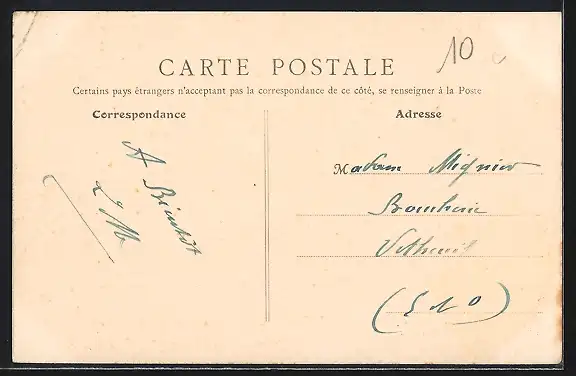 10
CARTE POSTALE
Certains pays étrangers n'acceptant pas la correspondance de ce côté, se renseigner à la Poste
Correspondance
Adresse
A Bientôt
Madame Mignier
Vetheuil
(S & O)